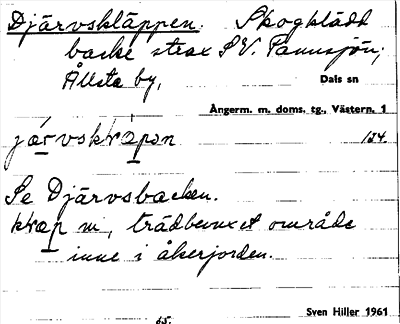 Djärvskläppen. Skogklädd
backe strax S.V. Tannsjön;
Ållsta by,
Dals sn
Ångerm. m. doms. tg., Västern. 1
járvskrapən 134.
Se Djärvsbacken.
krap m, trädbevuxet område
inne i åkerjorden.
Sven Hiller 1961
65.